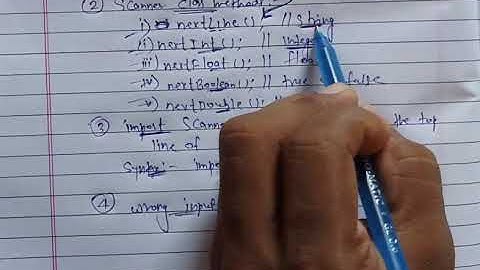 ② Scanner class methods:
i) nextLine(); // String
ii) nextInt(); // intege
iii) nextFloat(); // floa
iv) nextBoolean(); // true false
v) nextDouble(); //
③ import Scanne the top
line of
Syntax:- impo
④ wrong input